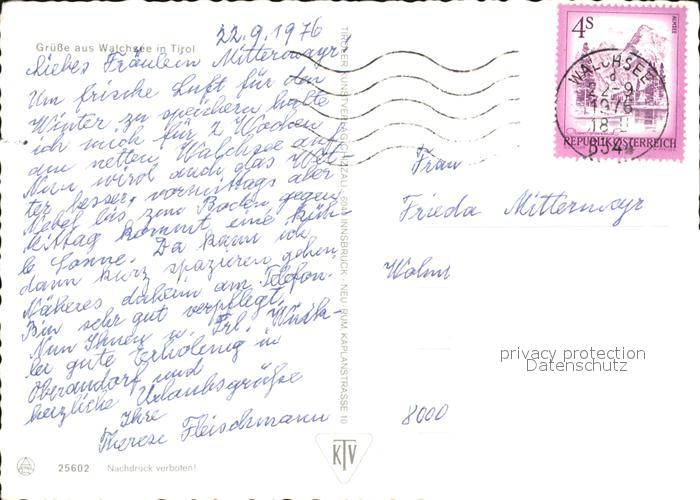 22.9.1976
Grüße aus Walchsee in Tirol
Liebes Fräulein Mittermayr!
Um frische Luft für den
Winter zu speichern halte
ich mich für 2 Wochen
am netten Walchsee auf.
Nun wird auch das Wet-
ter besser, vormittags aber
Nebel bis zum Boden gegen
Mittag kommt eine küh-
le Sonne. Da kann ich
dann kurz spazieren gehen.
Näheres daheim am Telefon.
Bin sehr gut verpflegt.
Nun Ihnen u. Frl.
ler gute Erholung in
Oberaudorf und
herzliche Urlaubsgrüße
Ihre
Therese Fleischmann
25602 Nachdruck verboten!
TIROLER KUNSTVERLAG CHIZZALI · 6040 INNSBRUCK · NEU-RUM KAPLANSTRASSE 10
KTV
4S
ALMSEE
REPUBLIK ÖSTERREICH
WALCHSEE
1976
Frau
Frieda Mittermayr
8000
privacy protection
Datenschutz